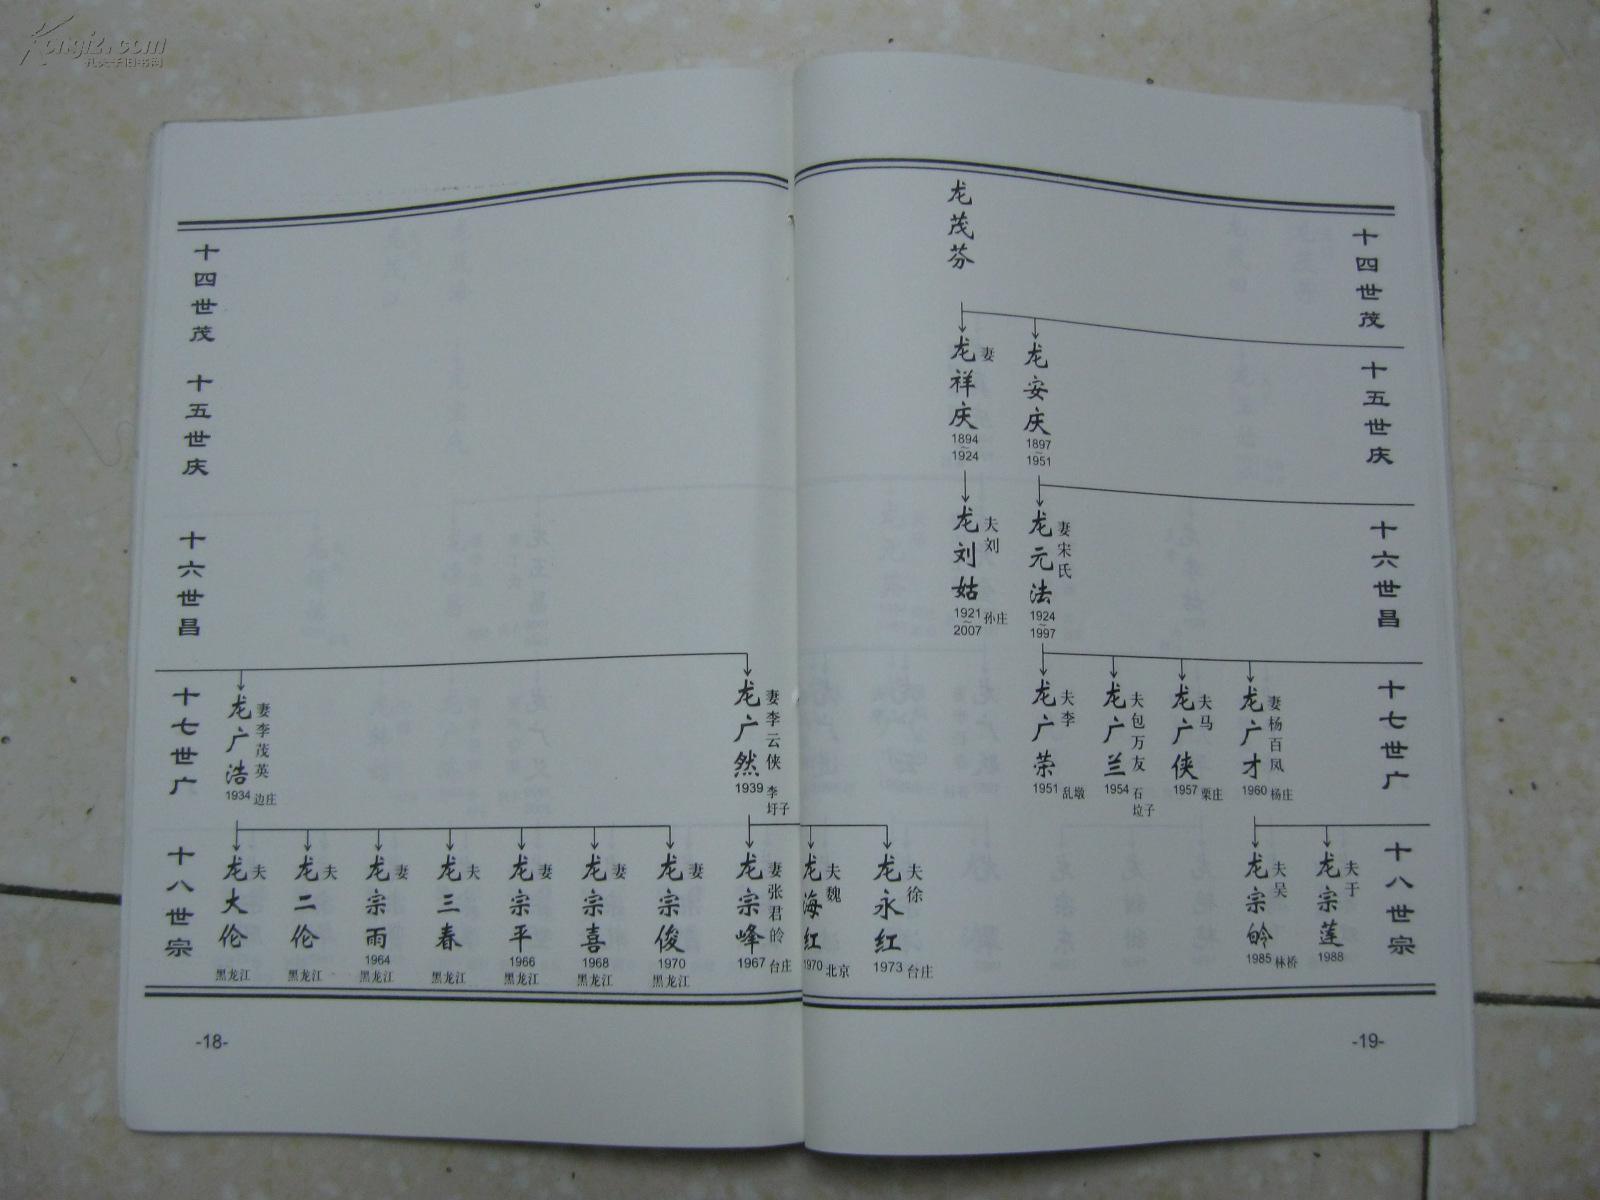 Kongfz.com
孔夫子旧书网
十四世茂
十五世庆
十六世昌
十七世广
十八世宗
龙广浩
妻李茂英
1934 边庄
龙广然
妻李云侠
1939 李圩子
龙大伦
夫
黑龙江
龙二伦
夫
黑龙江
龙宗雨
妻
1964
黑龙江
龙三春
夫
黑龙江
龙宗平
妻
1966
黑龙江
龙宗喜
妻
1968
黑龙江
龙宗俊
妻
1970
黑龙江
龙宗峰
妻张君皊
1967 台庄
-18-
龙茂芬
十四世茂
龙祥庆
妻
1894~1924
龙安庆
1897~1951
十五世庆
龙刘姑
夫刘
1921~2007
孙庄
龙元法
妻宋氏
1924~1997
十六世昌
龙广荣
夫李
1951 乱墩
龙广兰
夫包万友
1954 石垃子
龙广侠
夫马
1957 栗庄
龙广才
妻杨百凤
1960 杨庄
十七世广
龙海红
夫魏
1970 北京
龙永红
夫徐
1973 台庄
龙宗皊
夫吴
1985 林桥
龙宗莲
夫于
1988
十八世宗
-19-